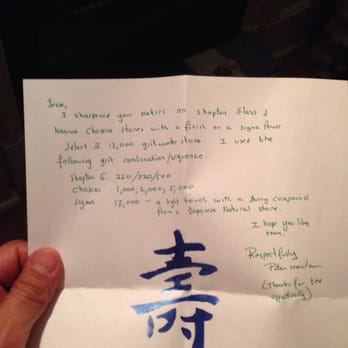 I sharpened your nakiri on Shapton Glass &
Naniwa Chosera stones with a finish on a Sigma Power
Select II 13,000 grit water stone. I used the
following grit combination/sequence.
Shapton G. 220/320/500
Chosera 1,000, 2,000, 5,000
Sigma 13,000 - a light touch with a slurry compound
from a Japanese Natural stone.
I hope you like
them.
Respectfully
Peter
(Thanks for the
opportunity)
壽